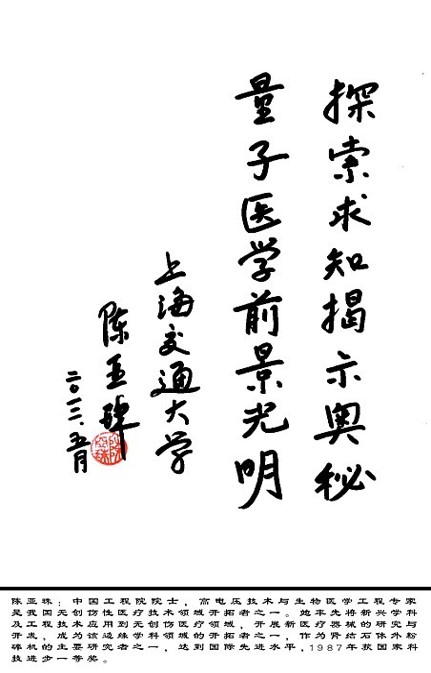 探索求知揭示奥秘
量子医学前景光明
上海交通大学
陈亚珠
二〇一二.五月
陈亚珠：中国工程院院士，高电压技术与生物医学工程专家
是我国无创伤性医疗技术领域开拓者之一。她率先将新兴学科
及工程技术应用到无创伤医疗领域，开展新医疗器械的研究与
开发，成为该边缘学科领域的开拓者之一，作为肾结石体外粉
碎机的主要研究者之一，达到国际先进水平，1987年获国家科
技进步一等奖。